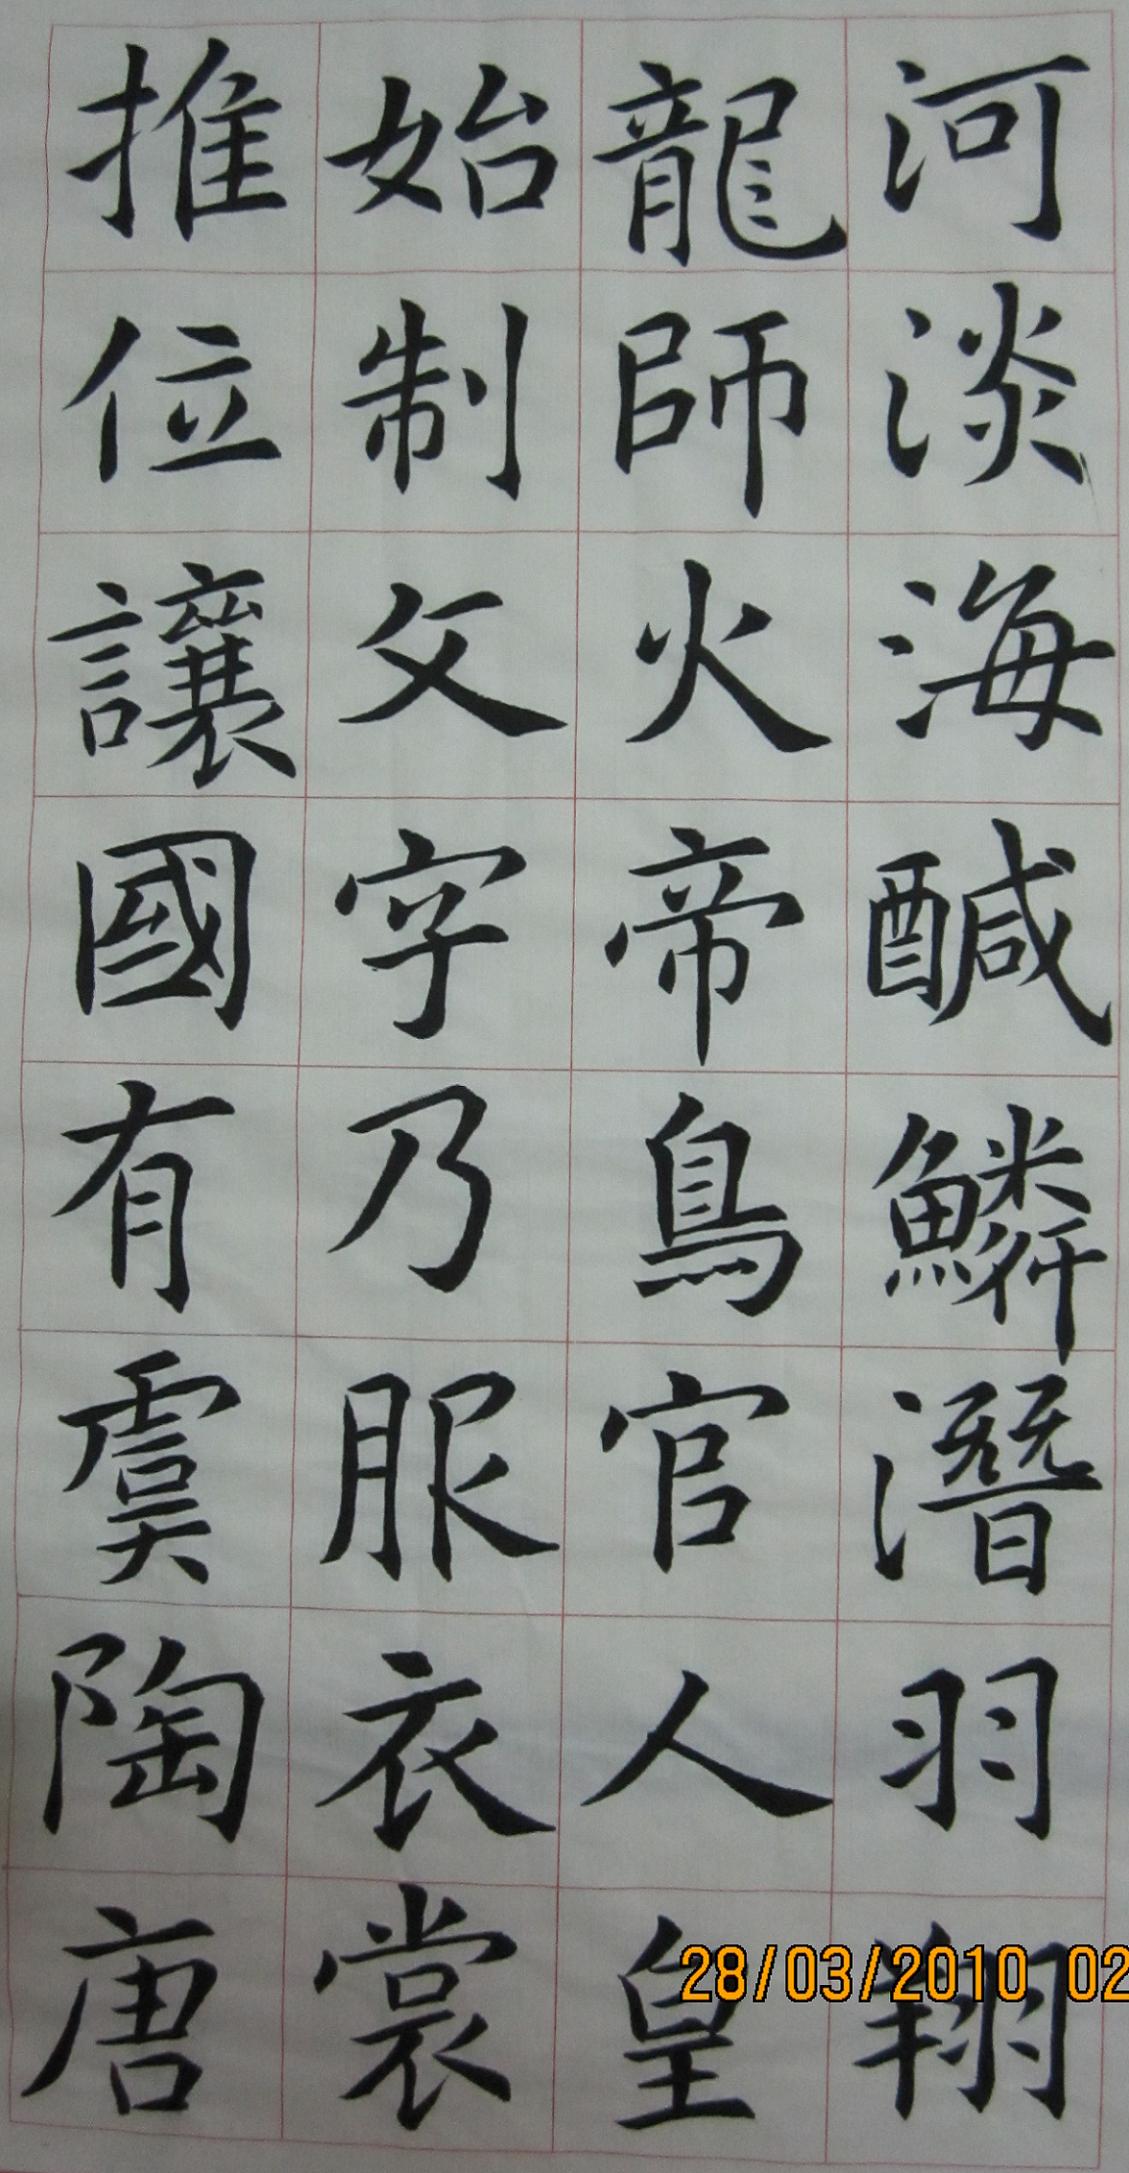 河淡海醎鱗潛羽翔
龍師火帝鳥官人皇
始制文字乃服衣裳
推位讓國有虞陶唐
28/03/2010 02